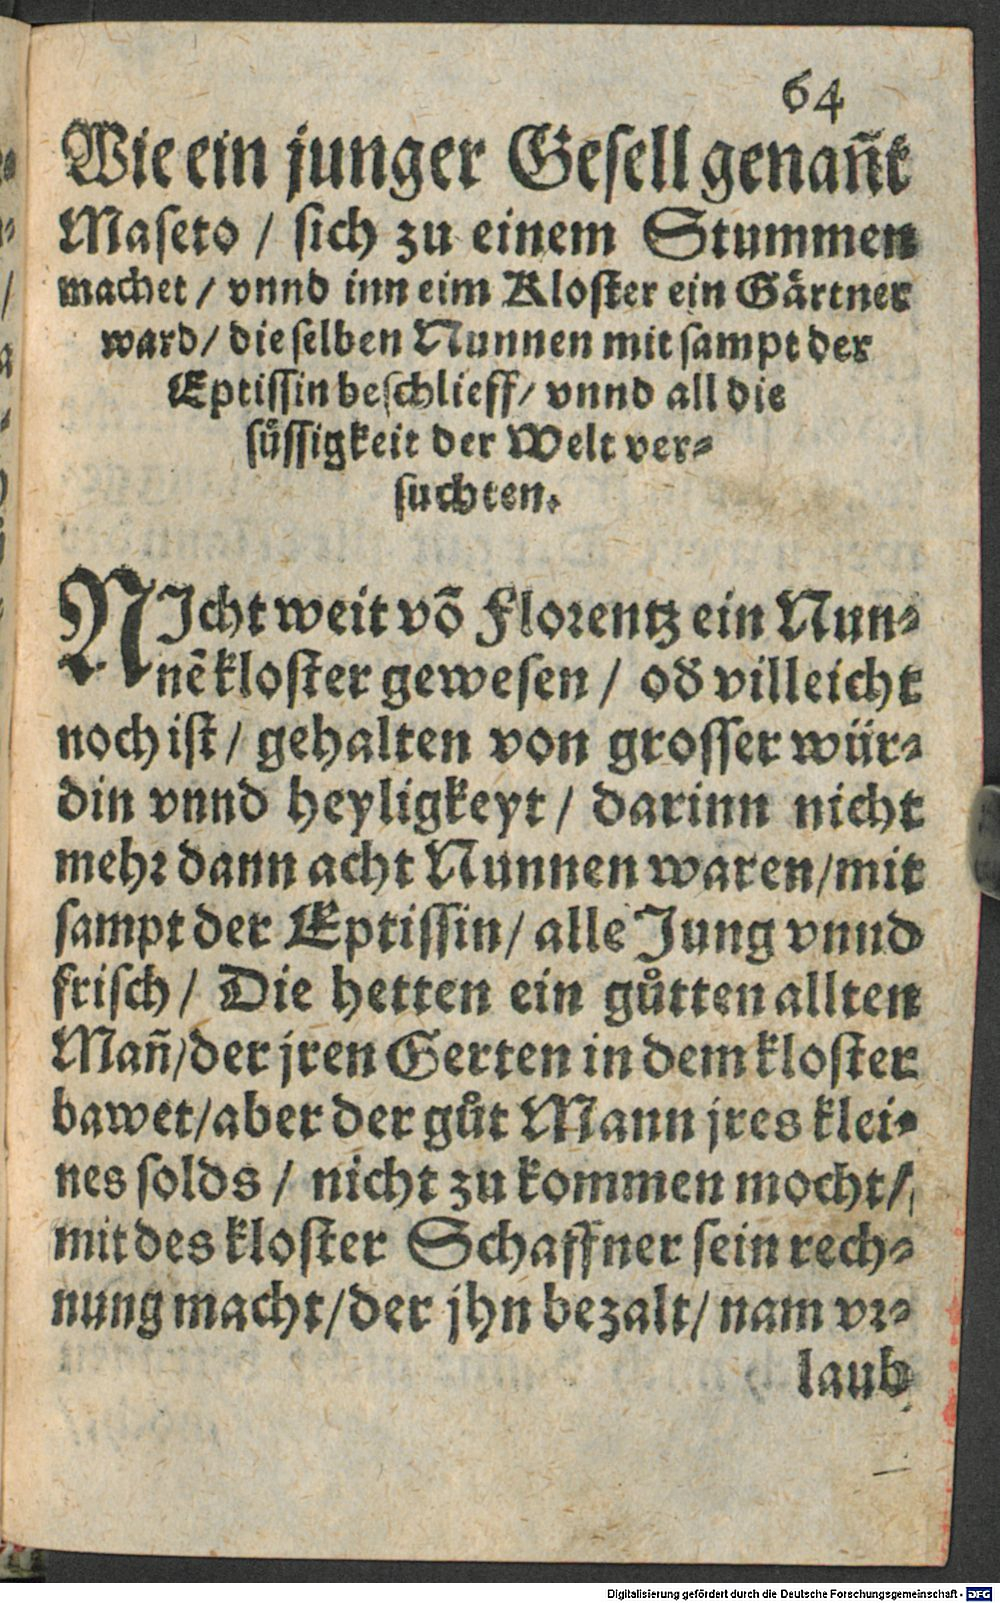 64
Wie ein junger Gesell genañt
Maseto / sich zu einem Stummen
machet / vnnd inn eim Kloster ein Gärtner
ward / die selben Nunnen mit sampt der
Eptissin beschlieff / vnnd all die
sůssigkeit der Welt ver-
suchten.
NIcht weit võ Florentz ein Nun-
nẽ kloster gewesen / od̃ villeicht
noch ist / gehalten von grosser wür-
din vnnd heyligkeyt / darinn nicht
mehr dann acht Nunnen waren / mit
sampt der Eptissin / alle Jung vnnd
frisch / Die hetten ein gůtten allten
Mañ / der jren Gerten in dem kloster
bawet / aber der gůt Mann jres klei-
nes solds / nicht zu kommen mocht /
mit des kloster Schaffner sein rech-
nung macht / der jhn bezalt / nam vr-
laub
Digitalisierung gefördert durch die Deutsche Forschungsgemeinschaft - DFG